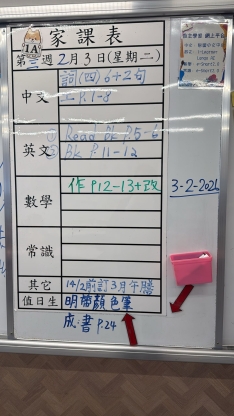 家課表
1A
第三週2月3日(星期二)
中文
詞(四)6+2句
工P.1-8
英文
① Read Bk P.5-6
② Bk P.11-12
數學
作P.12-13+改
3-2-2026
常識
其它
14/2前訂3月午膳
值日生
明帶顏色筆
成.書P.24